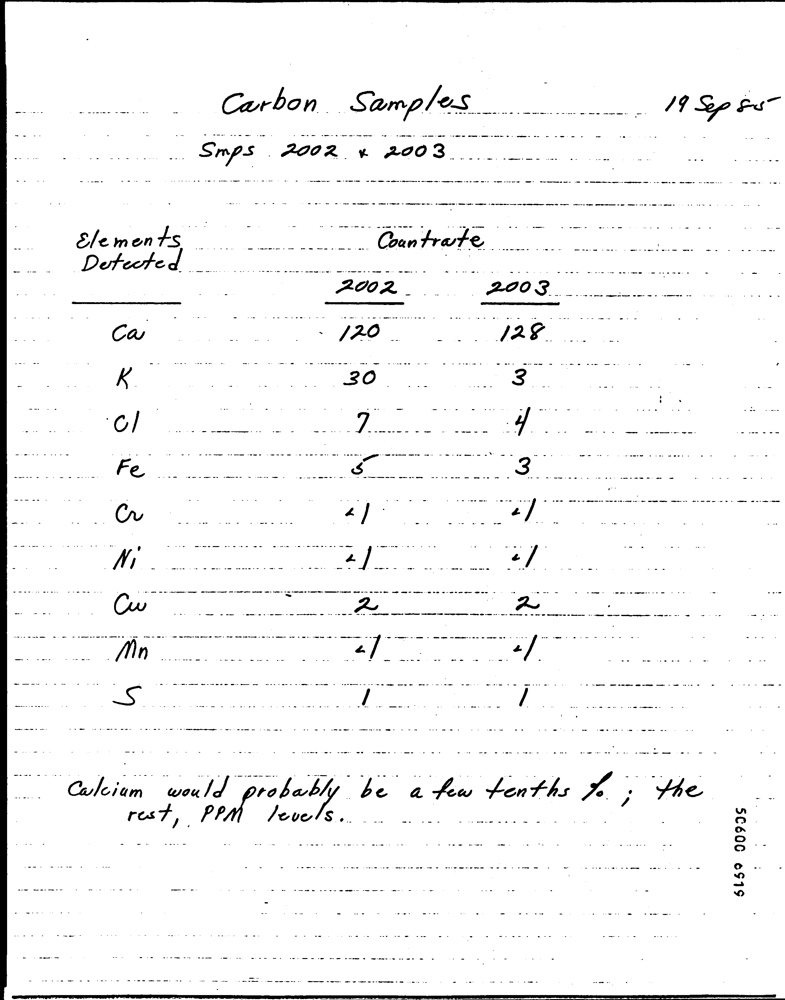 Carbon Samples 19 Sep 85
Smps 2002 & 2003
Elements Countrate
Detected
2002 2003
Ca 120 128
K 30 3
Cl 7 4
Fe 5 3
Cr <1 <1
Ni <1 <1
Cu 2 2
Mn <1 <1
S 1 1
Calcium would probably be a few tenths %; the
rest, PPM levels.